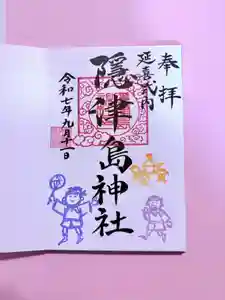 奉拝
延喜式内
隠津島神社
令和七年九月十一日